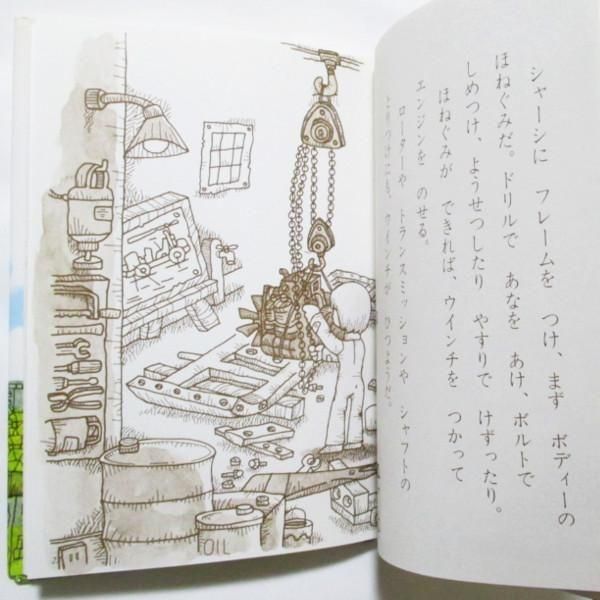 シャーシに　フレームを　つけ、まず　ボディーの
ほねぐみだ。ドリルで　あなを　あけ、ボルトで
しめつけ、ようせつしたり　やすりで　けずったり。
ほねぐみが　できれば、ウインチを　つかって
エンジンを　のせる。
ローターや　トランスミッションや　シャフトの
とりつけにも、ウインチが　ひつようだ。
OIL